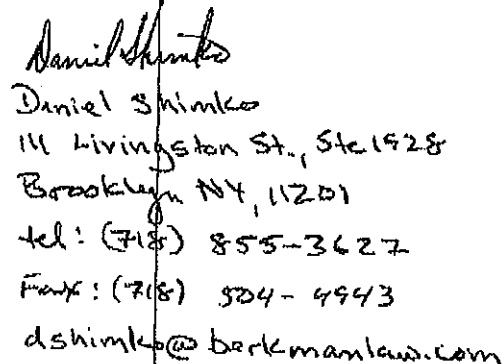 Daniel Shimko
Daniel Shimko
111 Livingston St., Ste 1928
Brooklyn NY, 11201
tel: (718) 855-3627
Fax: (718) 504-4943
dshimko@berkmanlaw.com